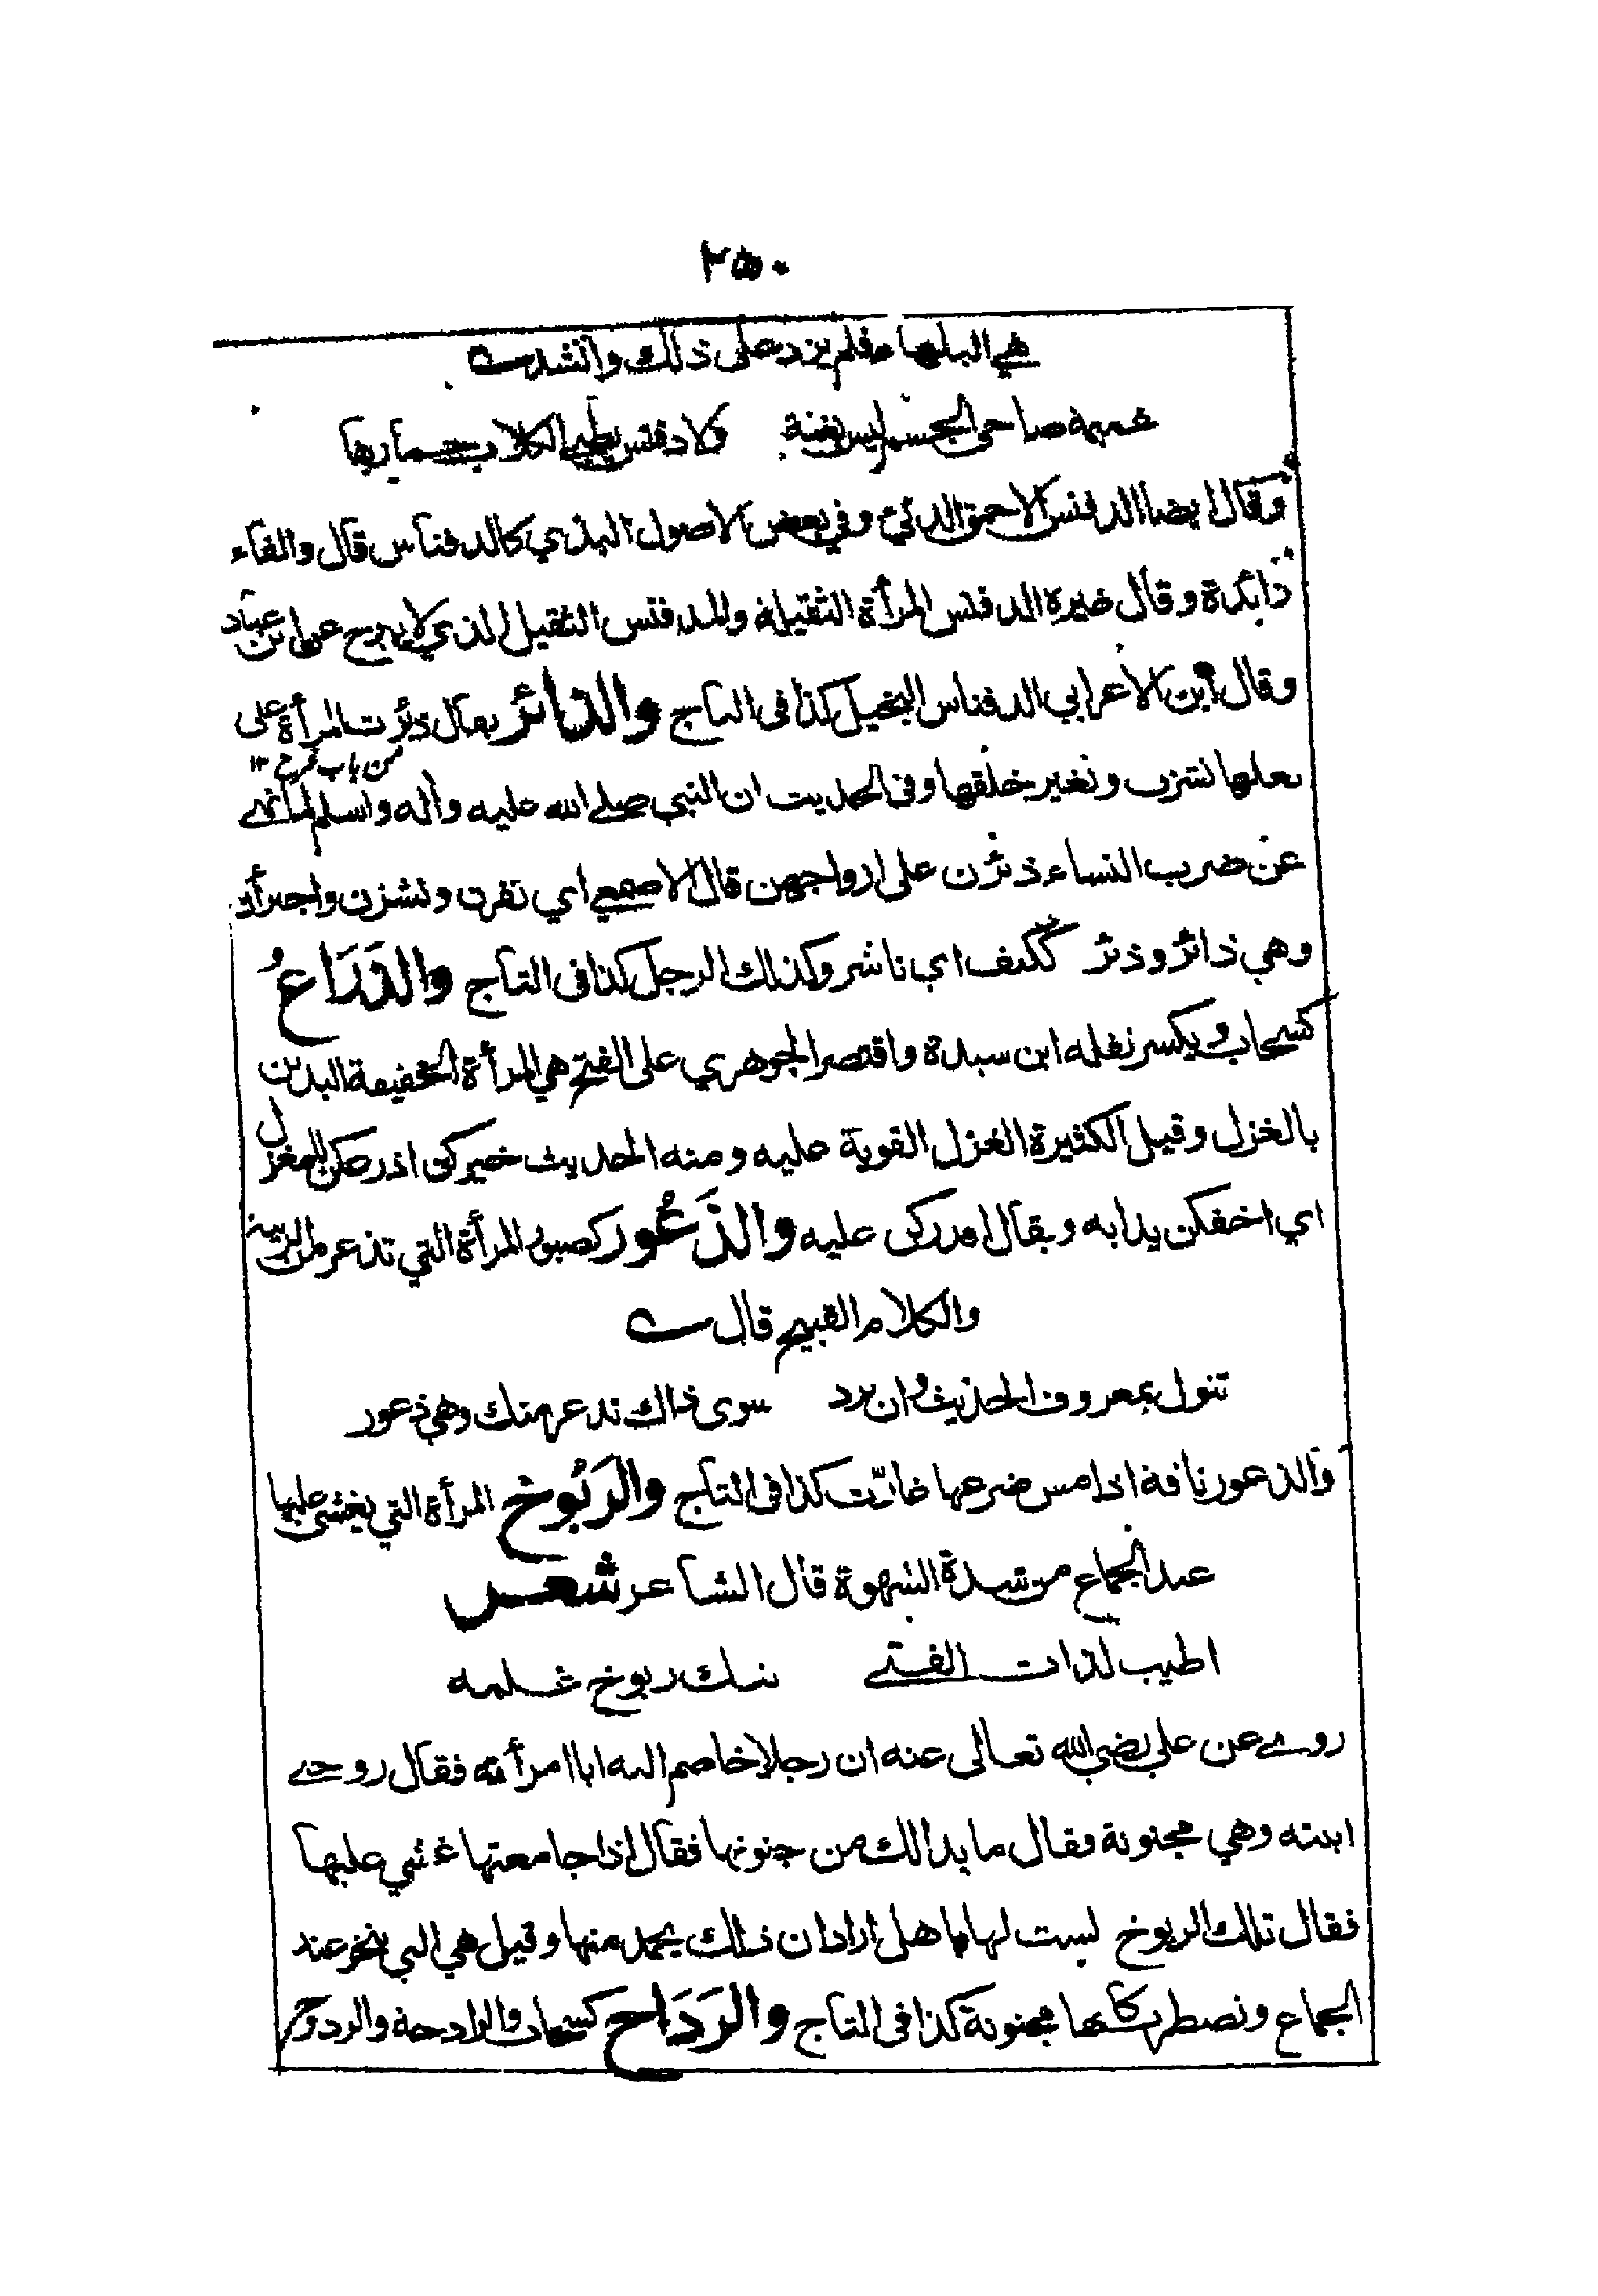 ٢٥٠
هي البلهاء فلم يزد على ذلك وانشد
عميمة ضاحي الجسم ليس بغثة ولا دفنس يطبي الكلاب خمارها
وقال ايضا الدفنس الاحمق الدنئ وفي بعض الاصول البذي كالدفناس قال والفاء
زائدة وقال غيره الدفنس المرأة الثقيلة والمدفنس الثقيل الذي لا يبرح عن ابن عباد
وقال ابن الاعرابي الدفناس البخيل كذا فى التاج والذائر يقال ذئرت المرأة على
من باب فرح ١٢
بعلها نشزت وتغير خلقها وفى الحديث ان النبي صلے الله عليه وآله واسلم لما نهى
عن ضرب النساء ذئرن على ازواجهن قال الاصمعي اي نفرن ونشزن واجترأن
وهي ذائر وذئر ككتف اي ناشز وكذلك الرجل كذا فى التاج والذراع
كسحاب ويكسر نقله ابن سيدة واقتصر الجوهري على الفتح هي المرأة الخفيفة اليدين
بالغزل وقيل الكثيرة الغزل القوية عليه ومنه الحديث خيركن اذرعكن للمغزل
اي اخفكن يدا به ويقال اقدركن عليه والذعور كصبور المرأة التي تذعر من الريبة
والكلام القبيح قال
تنول بمعروف الحديث وان ترد سوى ذاك تذعر منك وهي ذعور
والذعور ناقة اذا مس ضرعها غارّت كذا فى التاج والربوخ المرأة التي يغشى عليها
عند الجماع من شدة الشهوة قال الشاعر شعر
اطيب لذات الفتے نيك ربوخ غلمه
روے عن علي رضي الله تعالى عنه ان رجلا خاصم اليه ابا امرأته فقال زوجے
ابنته وهي مجنونة فقال ما بدا لك من جنونها فقال اذا جامعتها غشي عليها
فقال تلك الربوخ لست لها باهل اراد ان ذلك يحمد منها وقيل هي التي تنخر عند
الجماع وتضطرب كانها مجنونة كذا فى التاج والرداح كسحاب والرادحة والردوح